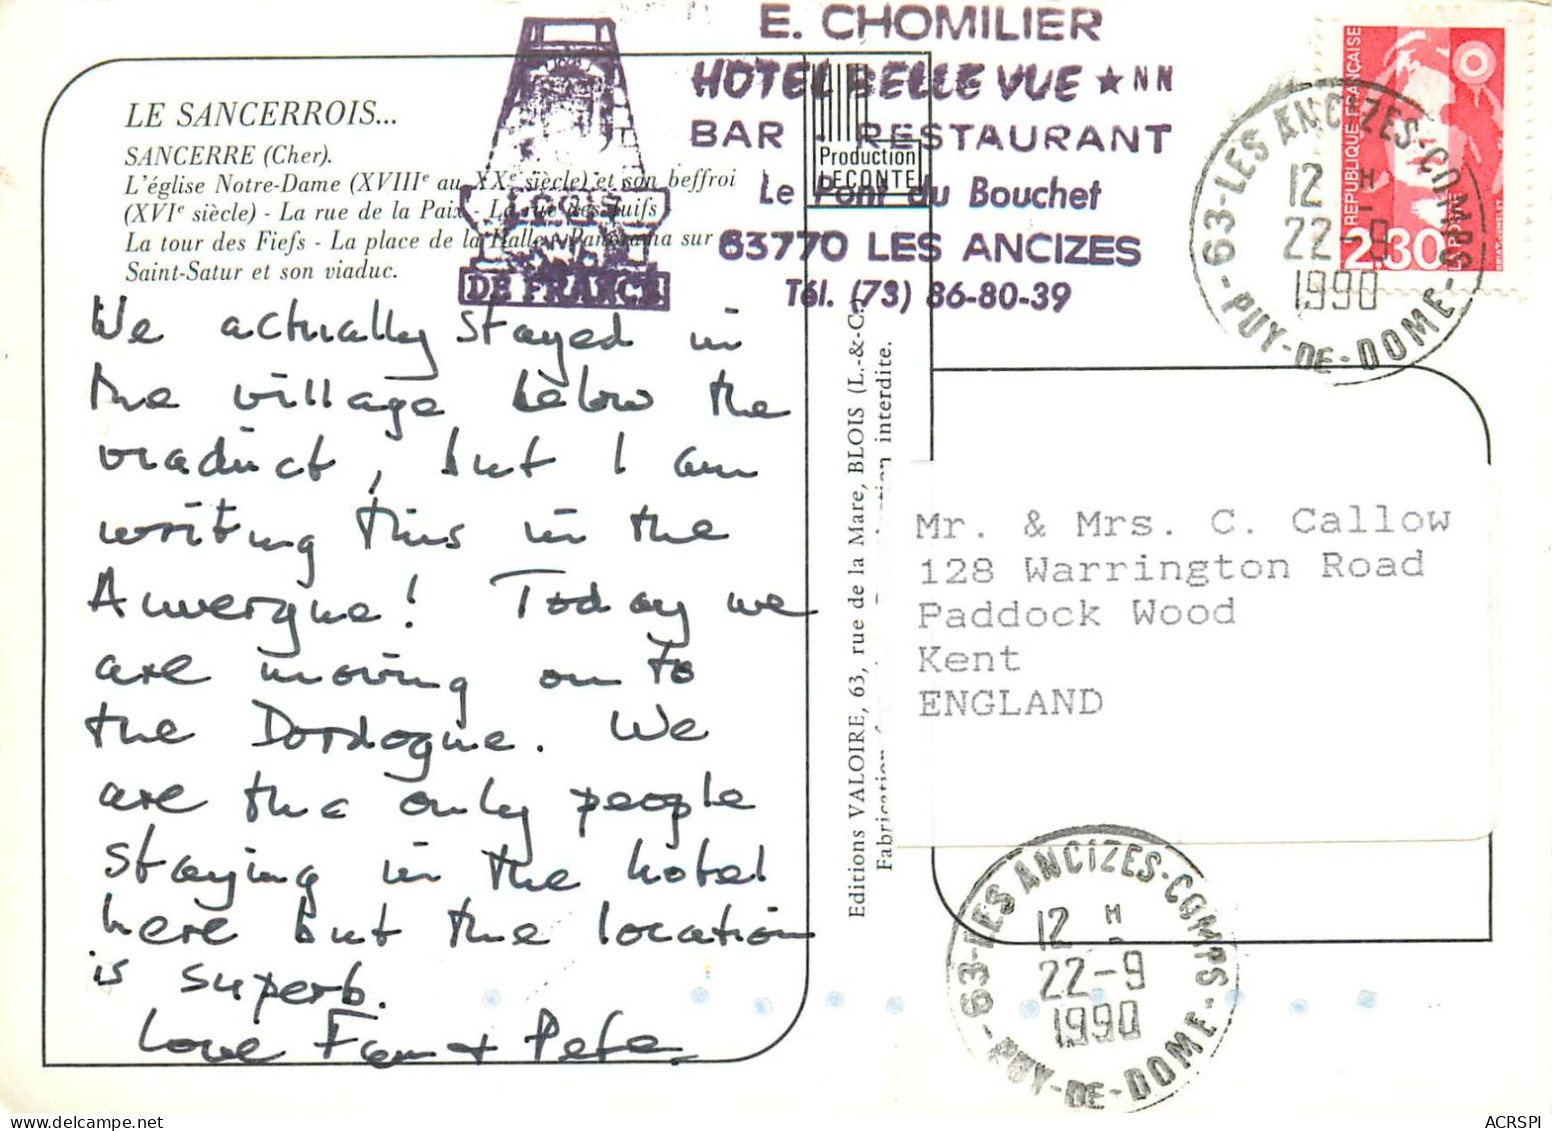 LE SANCERROIS...
SANCERRE (Cher).
L'église Notre-Dame (XVIIIe au XXe siècle) et son beffroi
(XVIe siècle) - La rue de la Paix - La rue des Juifs
La tour des Fiefs - La place de la Halle - Panorama sur
Saint-Satur et son viaduc.
LOGIS
DE FRANCE
E. CHOMILIER
HOTEL BELLE VUE ★ NN
BAR - RESTAURANT
Le Pont du Bouchet
63770 LES ANCIZES
Tél. (73) 86-80-39
Production
LECONTE
REPUBLIQUE FRANÇAISE
2,30
63-LES ANCIZES-COMPS
12 H
22-9
1990
-PUY-DE-DOME-
We actually stayed in
the village below the
viaduct, but I am
writing this in the
Auvergne! Today we
are moving on to
the Dordogne. We
are the only people
staying in the hotel
here but the location
is superb.
Love Fam + Pete.
Editions VALOIRE, 63, rue de la Mare, BLOIS (L.-&-C.)
Fabrication interdite.
Mr. & Mrs. C. Callow
128 Warrington Road
Paddock Wood
Kent
ENGLAND
63-LES ANCIZES-COMPS
12 H
22-9
1990
-PUY-DE-DOME-
ACRSPI